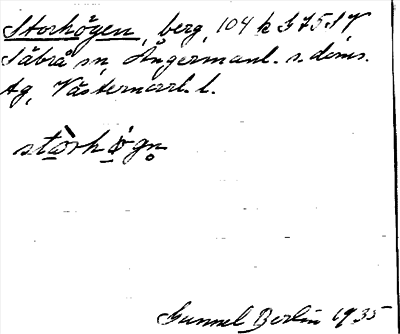 Storhögen, berg, 104 k G 75 S V
Säbrå sn, Ångermanl. s. doms.
tg, Västernorrl. l.
stòrhø̀gn̥
Gunnel Berlin 1935